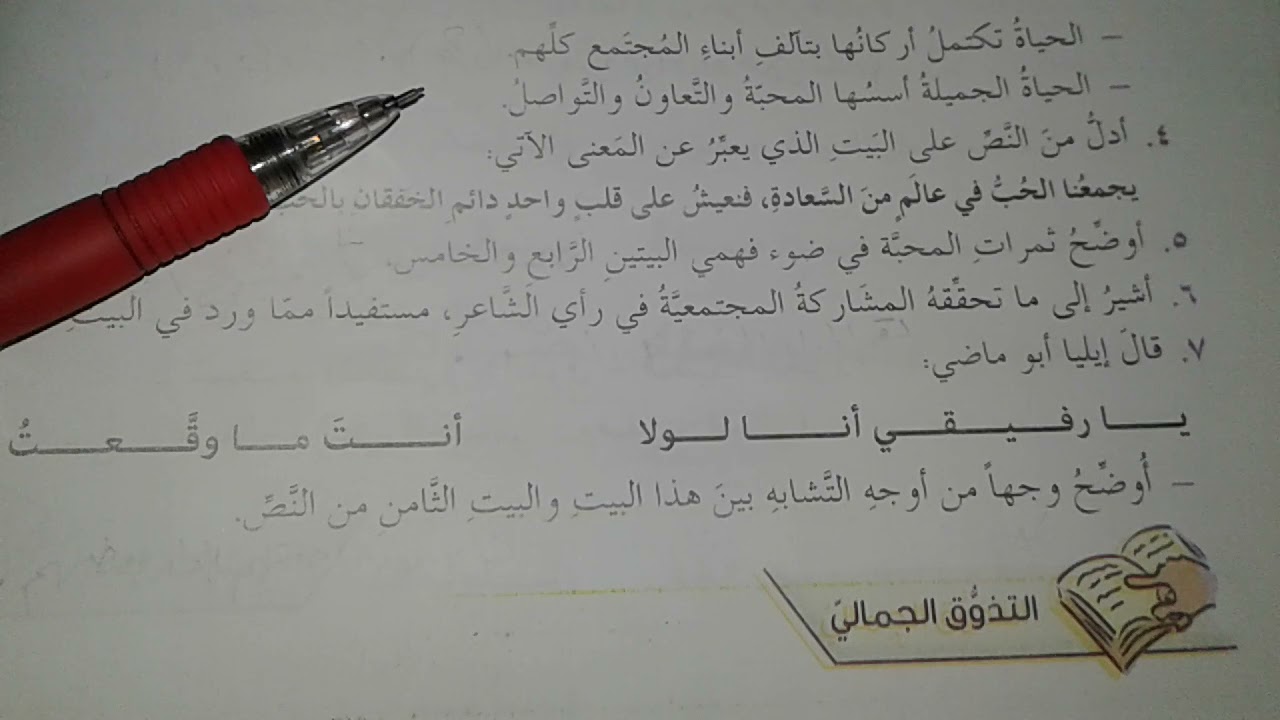 – الحياةُ تكتملُ أركانُها بتآلفِ أبناءِ المُجتَمع كلِّهم.
– الحياةُ الجميلةُ أسسُها المحبّةُ والتَّعاونُ والتَّواصلُ.
٤. أدلُّ منَ النَّصِّ على البَيتِ الذي يعبِّرُ عن المَعنى الآتي:
يجمعُنا الحُبُّ في عالَمٍ منَ السَّعادةِ، فنعيشُ على قلبٍ واحدٍ دائمِ الخفقانِ
٥. أوضِّحُ ثمراتِ المحبَّة في ضوء فهمي البيتينِ الرَّابعِ والخامس.
٦. أشيرُ إلى ما تحقِّقهُ المشَاركةُ المجتمعيَّةُ في رأي الشَّاعرِ، مستفيداً ممّا ورد في البيتِ
٧. قالَ إيليا أبو ماضي:
يـا رفـيـقـي أنـا لـولا أنـتَ مـا وقَّـعـتُ
– أُوضِّحُ وجهاً من أوجهِ التَّشابهِ بينَ هذا البيتِ والبيتِ الثَّامنِ من النَّصِّ.
التذوُّق الجماليّ